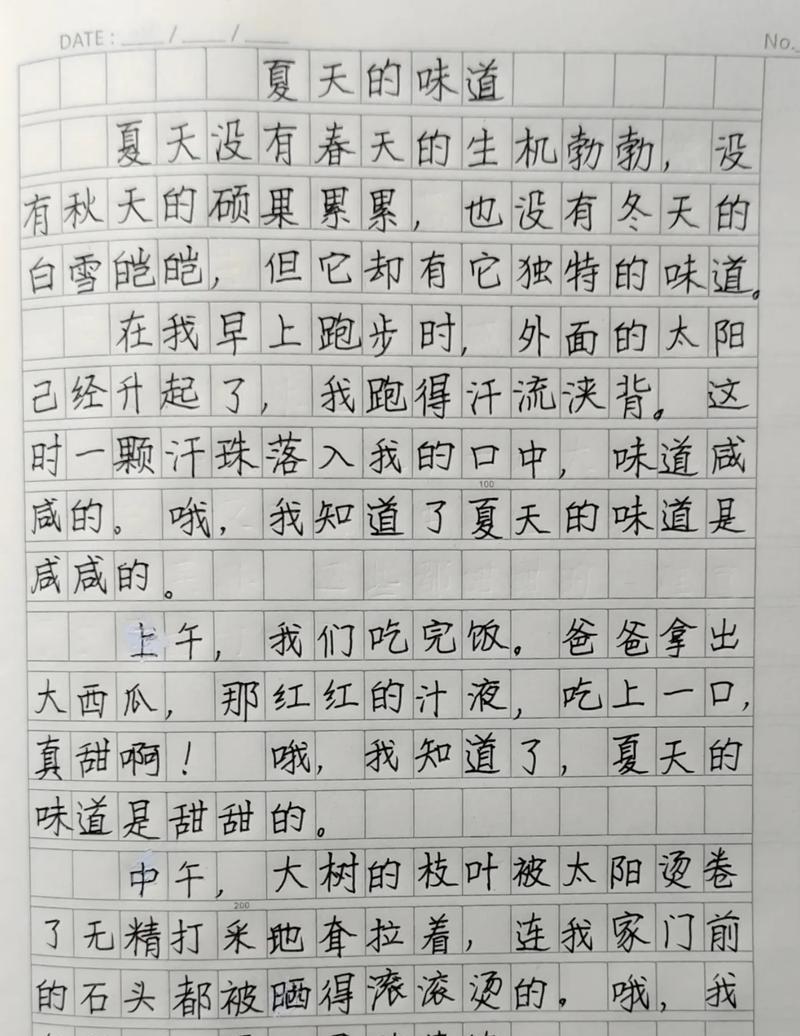 DATE: ___/___/___ No.
夏天的味道
夏天没有春天的生机勃勃，没
有秋天的硕果累累，也没有冬天的
白雪皑皑，但它却有它独特的味道。
在我早上跑步时，外面的太阳
己经升起了，我跑得汗流浃背。这
时一颗汗珠落入我的口中，味道咸
100
咸的。哦，我知道了夏天的味道是
咸咸的。
上午，我们吃完饭。爸爸拿出
大西瓜，那红红的汁液，吃上一口，
真甜啊！哦，我知道了，夏天的
味道是甜甜的。
中午，大树的枝叶被太阳烫卷
200
了无精打采地耷拉着，连我家门前
的石头都被晒得滚滚烫的。哦，我